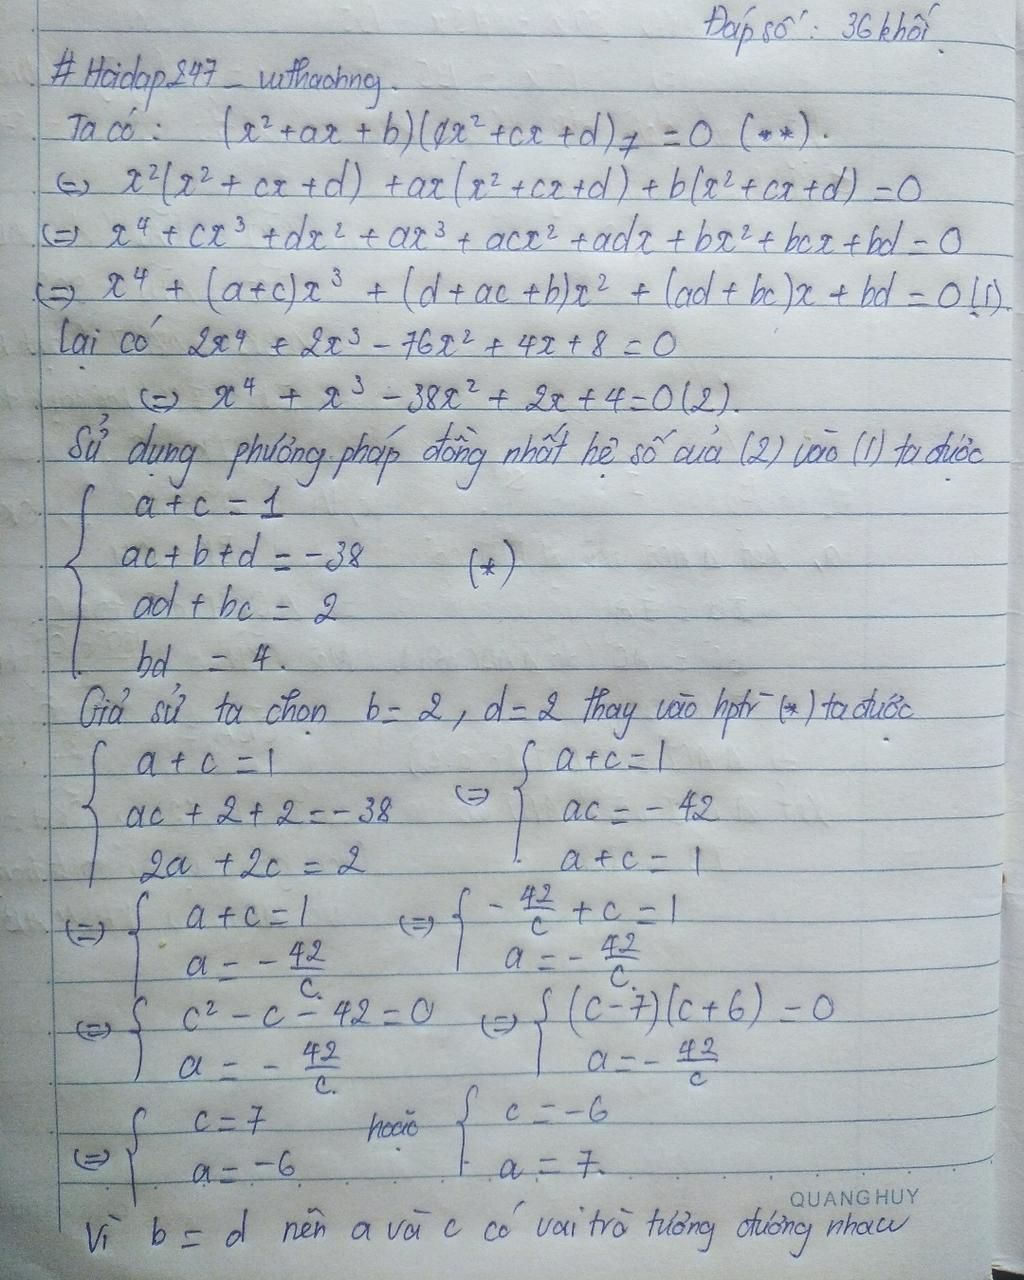 Đáp số: 36 khối.
#Hoidap247_vuthaohng.
Ta có: (x² + ax + b)(x² + cx + d) = 0 (**).
(=) x²(x² + cx + d) + ax(x² + cx + d) + b(x² + cx + d) = 0
(=) x⁴ + cx³ + dx² + ax³ + acx² + adx + bx² + bcx + bd = 0
(=) x⁴ + (a+c)x³ + (d + ac + b)x² + (ad + bc)x + bd = 0 (1).
Lại có 2x⁴ + 2x³ - 76x² + 4x + 8 = 0
(=) x⁴ + x³ - 38x² + 2x + 4 = 0 (2).
Sử dụng phương pháp đồng nhất hệ số của (2) vào (1) ta được
{ a + c = 1
ac + b + d = -38 (*)
ad + bc = 2
bd = 4.
Giả sử ta chọn b = 2, d = 2 thay vào hptr (*) ta được
{ a + c = 1 (=) { a + c = 1
ac + 2 + 2 = -38 ac = -42
2a + 2c = 2 a + c = 1
(=) { a + c = 1 (=) { -42/c + c = 1
a = -42/c. a = -42/c.
(=) { c² - c - 42 = 0 (=) { (c - 7)(c + 6) = 0
a = -42/c. a = -42/c
(=) { c = 7 hoặc { c = -6
a = -6 a = 7.
QUANG HUY
Vì b = d nên a và c có vai trò tương đương nhau